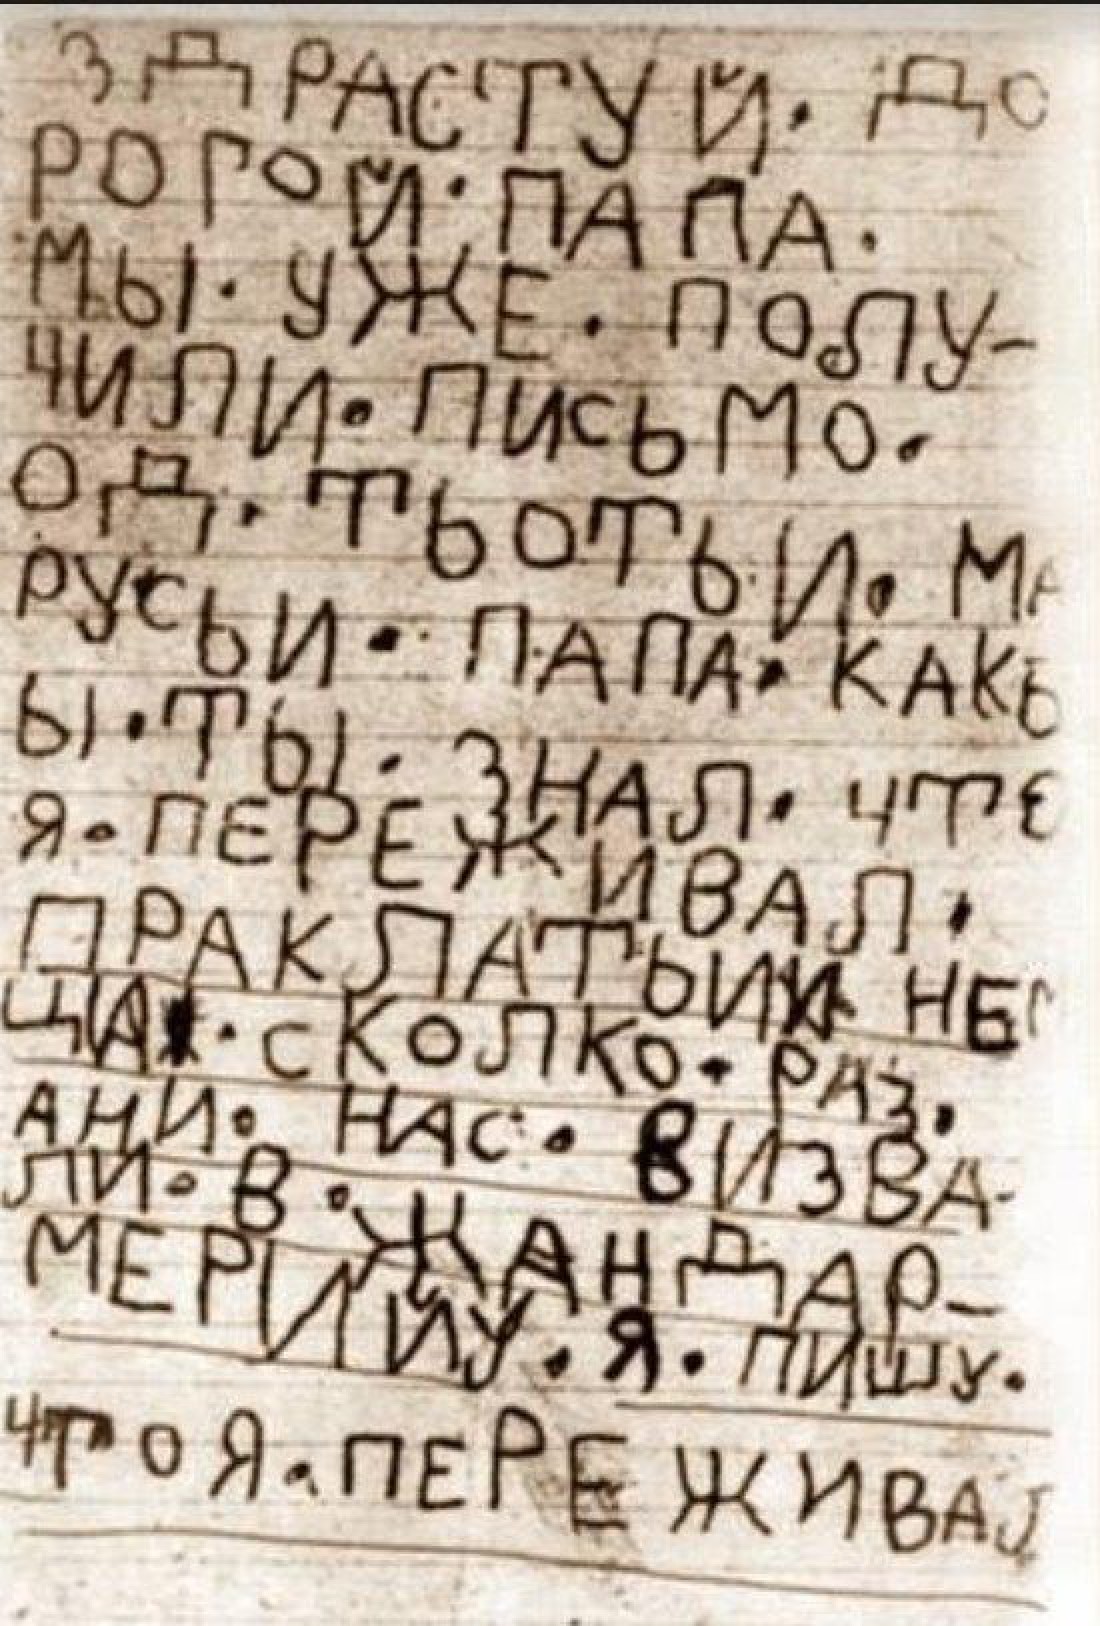 ЗДРАСТУЙ. ДО
РОГОЙ. ПАПА.
МЫ. УЖЕ. ПОЛУ-
ЧИЛИ. ПИСЬМО.
ОД. ТЬОТЬИ. МА
РУСЬИ. ПАПА. КАКБ
Ы. ТЫ. ЗНАЛ. ЧТО
Я. ПЕРЕЖИВАЛ.
ПРАКЛАТЫИ НЕМ
ЦА. СКОЛКО. РАЗ.
АНИ. НАС. ВИЗВА-
ЛИ. В. ЖАНДАР-
МЕРИИУ. Я. ПИШУ.
ЧТО Я. ПЕРЕЖИВАЛ